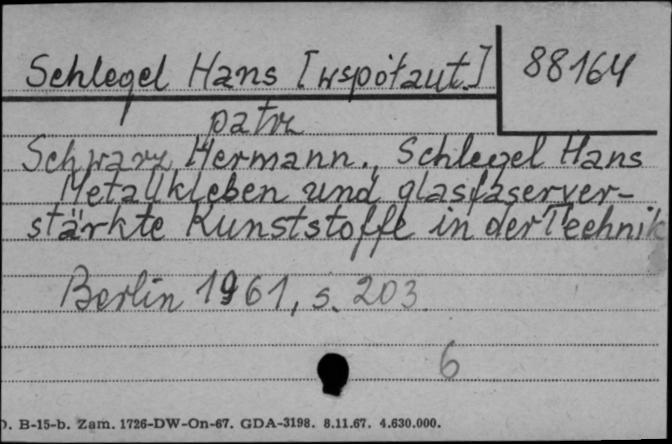 Schlegel Hans [współaut.]
88164
patrz
Schwarz Hermann., Schlegel Hans
Metallkleben und glasfaserver-
stärkte Kunststoffe in der Technik
Berlin 1961, s. 203.
6
D. B-15-b. Zam. 1726-DW-On-67. GDA-3198. 8.11.67. 4.630.000.